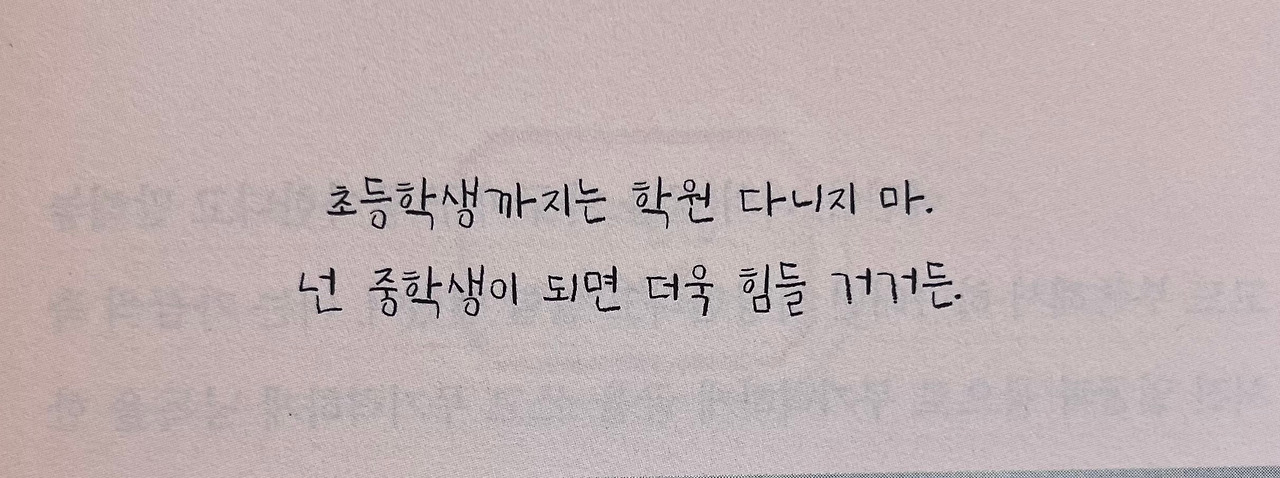 초등학생까지는 학원 다니지 마.
넌 중학생이 되면 더욱 힘들 거거든.